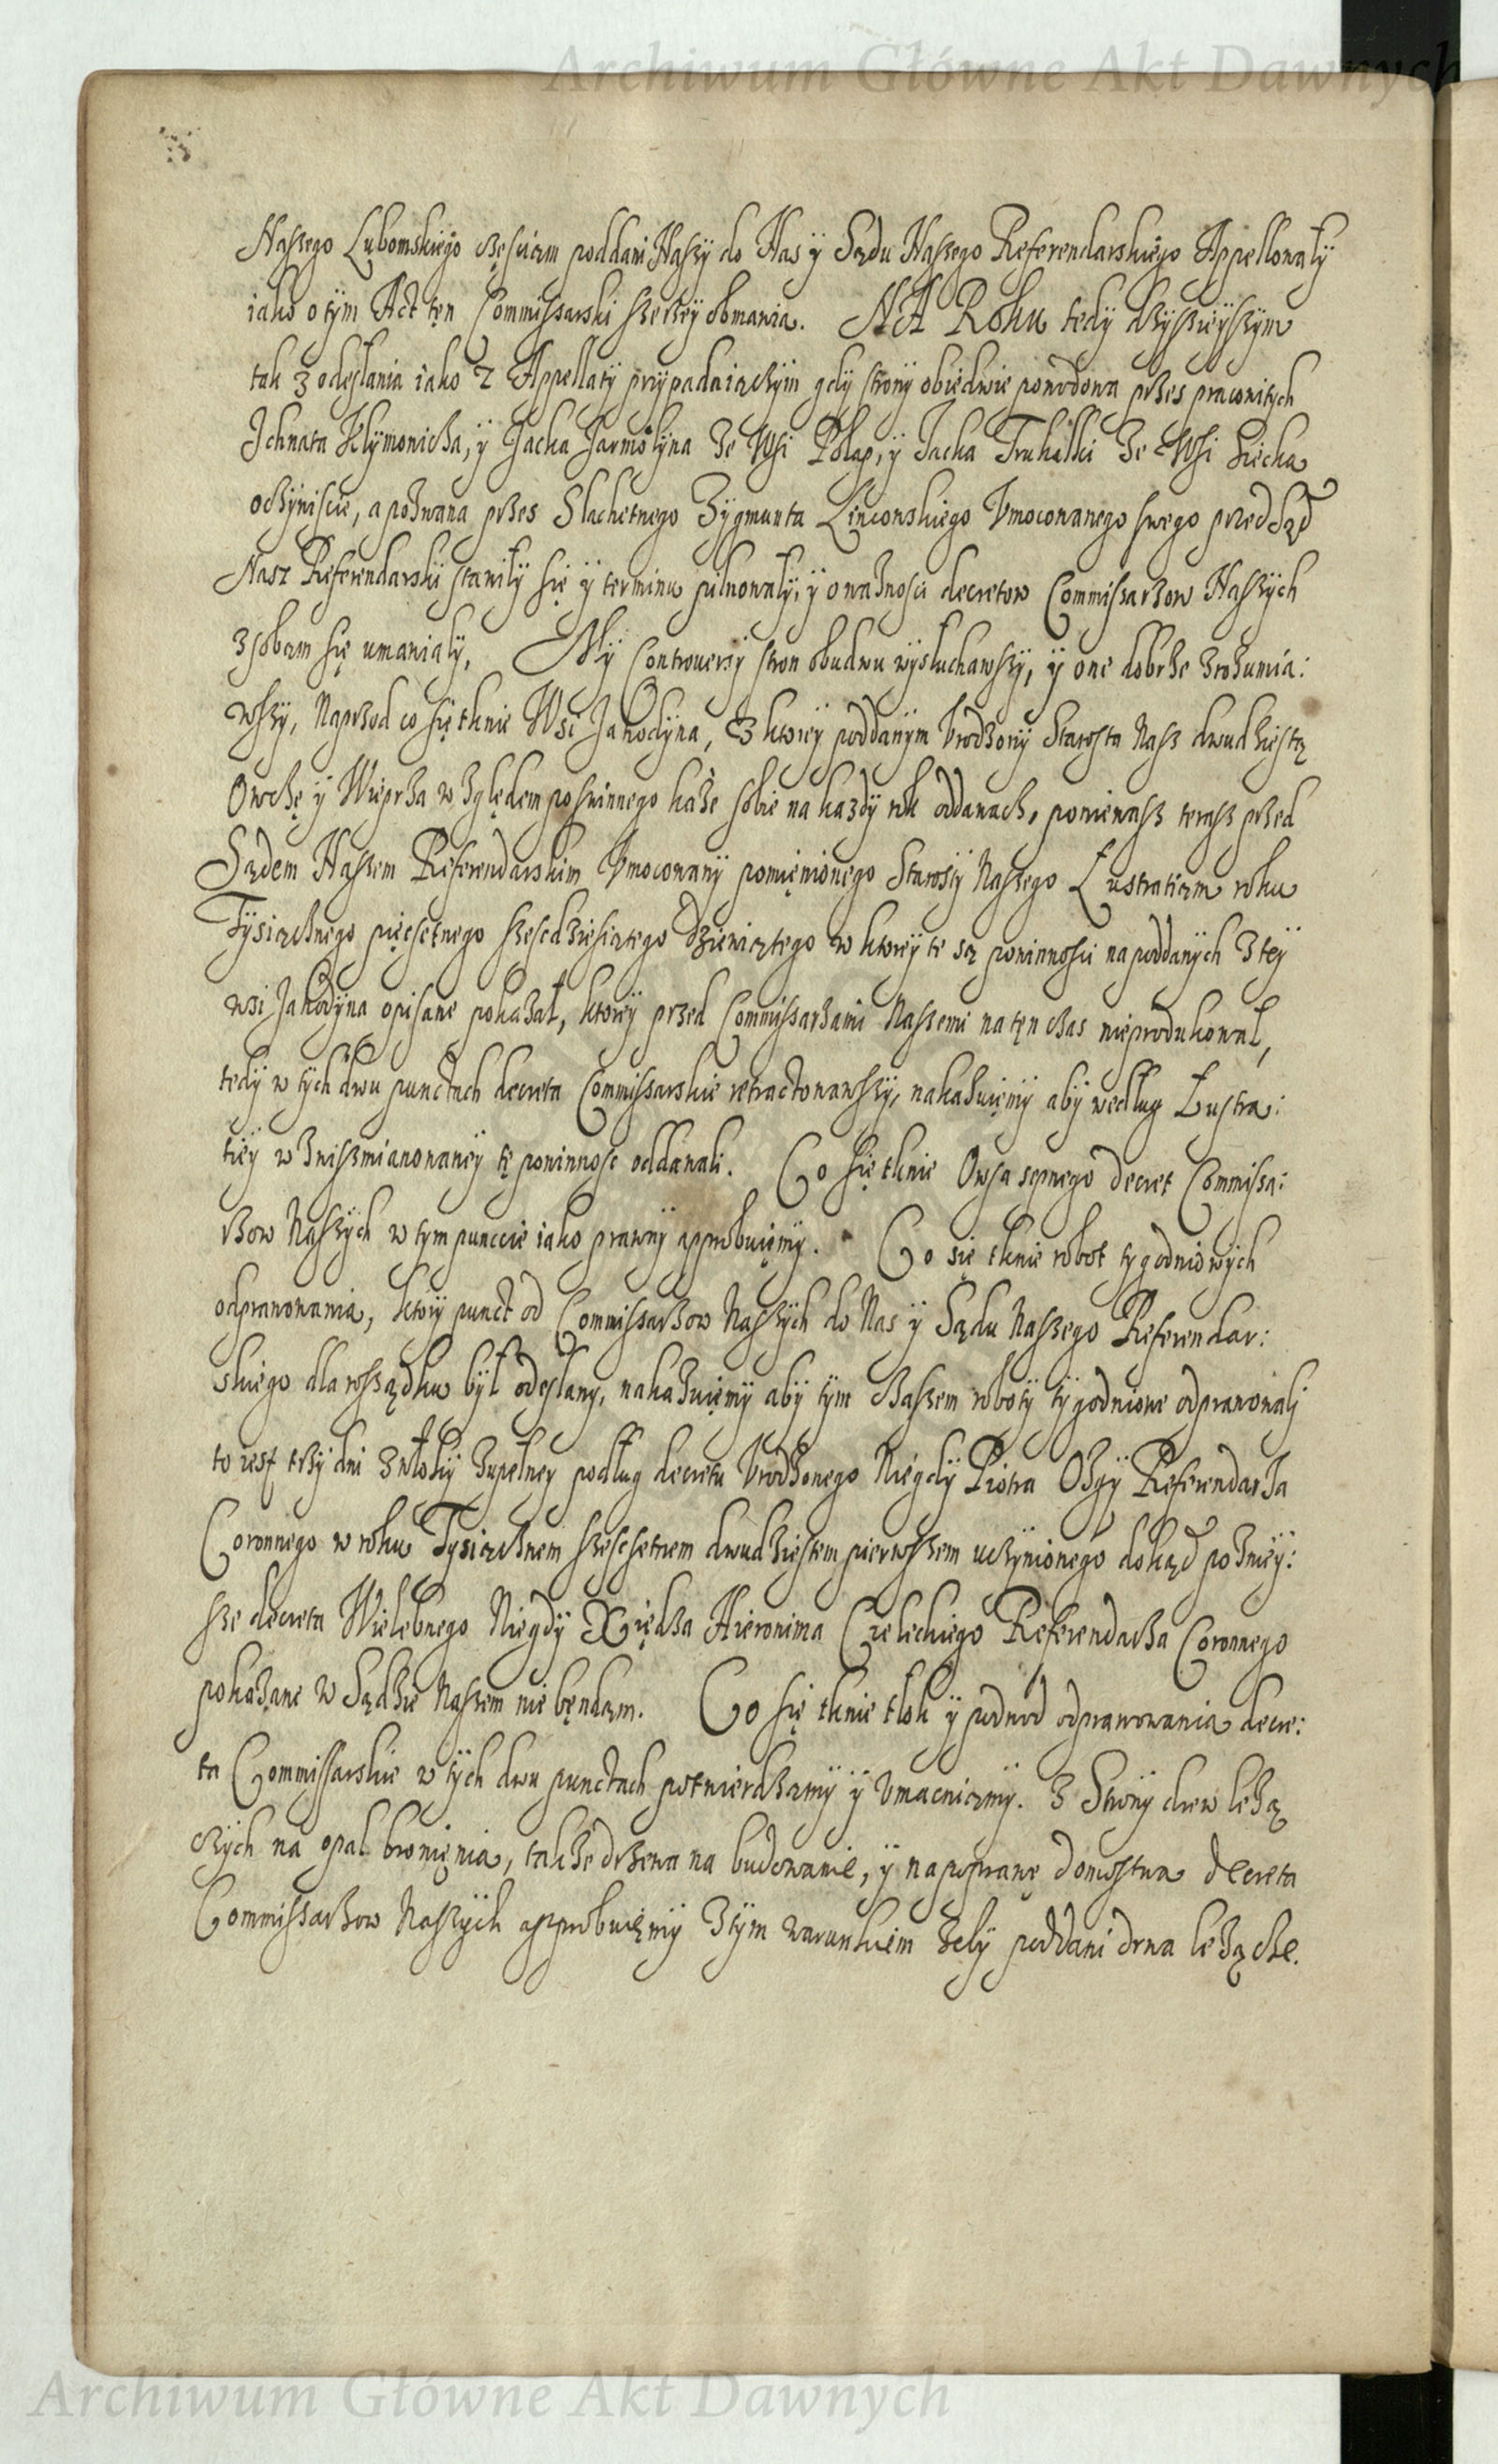 Archiwum Główne Akt Dawnych
Naszego Lubomskiego częsciam poddani Naszy do Nas ÿ Sądu Naszego Referendarskiego Appellowały
iako o tÿm Act ten Commissarski szerzey obmawia. NA Roku tedÿ dzyszieÿszÿm
tak z odesłania iako z Appellatÿ przÿpadaiączÿm gdÿ stronÿ obiedwie powodowa przes pracowitÿch
Ichnata Klÿmonicza, ÿ Jacka Jarmolÿna ze Wsi Połap, ÿ Jacka Truhalki ze Wsi
oczÿwiscie, a pozwana przes Slachetnego Zÿgmunta Linconskiego Vmocowanego swego przed Sąd
Nasz Referendarski stawiłÿ się ÿ terminu pilnowałÿ, ÿ o waznosci decretow Commissarzow Naszÿch
z sobam się umawiałÿ, Mÿ Controwersÿ stron obudwu wÿsłuchawszÿ, ÿ one dobrze zrozumia:
wszÿ, Naprzod co się tknie Wsi Jahodÿna, z ktorey poddanÿm Vrodzonÿ Starosta Nasz dwudziestą
Owcżę ÿ Wieprza względem powinnego każe sobie na kazdÿ rok oddawach, poniewasz terasz przed
Sądem Naszem Referendarskim Vmocowanÿ pomienionego Starostÿ Naszego Lustratiam roku
Tysiącznego pięcsetnego szescdziesiątego dziewiątego w ktorey te są powinnosci na poddanÿch z teÿ
wsi Jahodÿna opisane pokazał, ktoreÿ przed Commissarzami Naszemi na ten czas nieprodukował,
tedÿ w tÿch dwu punctach decreta Commissarskie retractowawszÿ, nakazuięmÿ abÿ według Lustra:
tieÿ wzwiszmianowaneÿ tę powinnosc oddawali. Co się tknie Owsa sepnego decret Commissa:
rzow Naszÿch w tym punccie iako prawnÿ approbuięmÿ. Co się tknie robot tygodniowÿch
odprawowania, ktorÿ punct od Commissarzow Naszÿch do Nas ÿ Sądu Naszego Referendar:
skiego dla rossądku bÿł odesłany, nakazuięmÿ abÿ tÿm czassem robotÿ tÿgodniowe odprawowali
to iest trzÿ dni z włokÿ zupełney podług decretu Vrodzonego Niegdÿ Piotra Ożgÿ Referendarza
Coronnego w roku Tysiącznem szescsetnem dwudziestem pierwszem uczynionego dokąd pozniey:
sze decreta Wielebnego Niegdÿ Xiędza Hieronima Cieleckiego Referendarza Coronnego
pokazane w Sądzie Naszem nie bęndam. Co się tknie tłok ÿ podwod odprawowania decre:
ta Commissarskie w tÿch dwu punctach potwierdzamÿ ÿ Vmacniamÿ. Z Stronÿ drew leżą
czÿch na opał bronięnia, także drzewa na budowanie, ÿ na poprawę domostwa decreta
Commissarzow Naszÿch approbuięmÿ z tÿm warunkiem żebÿ poddani drwa leżącze.
Archiwum Główne Akt Dawnych